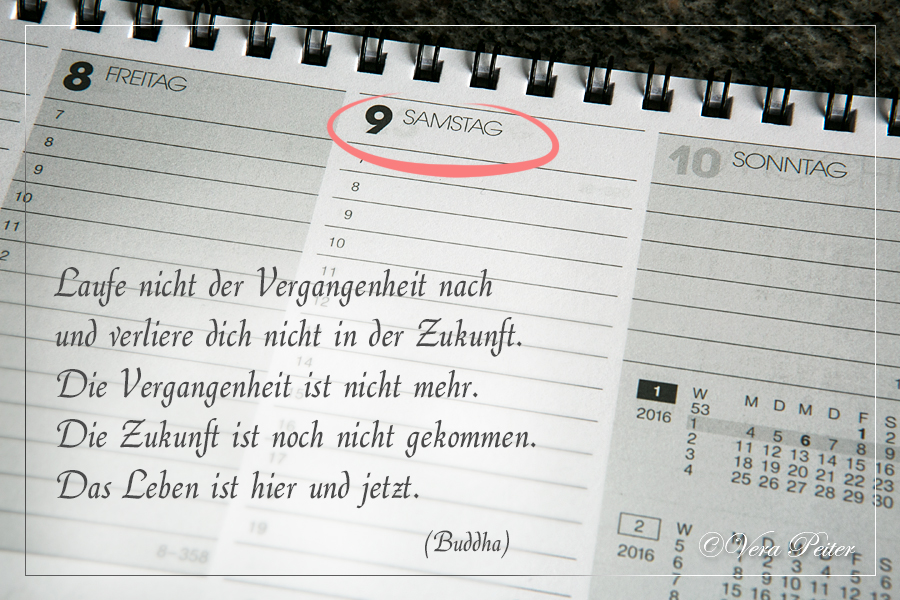 8 FREITAG
9 SAMSTAG
10 SONNTAG
7
8
9
10
11
2
8
9
10
11
12
14
16
17
19
8-358
Laufe nicht der Vergangenheit nach
und verliere dich nicht in der Zukunft.
Die Vergangenheit ist nicht mehr.
Die Zukunft ist noch nicht gekommen.
Das Leben ist hier und jetzt.
(Buddha)
1
2016
W M D M D F S
53 1 2
1 4 5 6 7 8 9
2 11 12 13 14 15 16
3 18 19 20 21 22 23
4 25 26 27 28 29 30
2
2016
W
5
6
7
©Vera Peiter